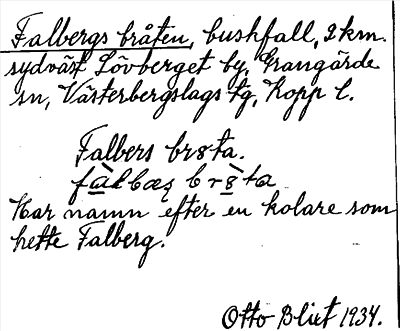 Falbergs bråten, bushfall, 2 km.
sydväst Lövberget by, Grangärde
sn, Västerbergslags tg, Kopp l.
Falbers brɞta.
Har namn efter en kolare som
hette Falberg.
Otto Blixt 1934.